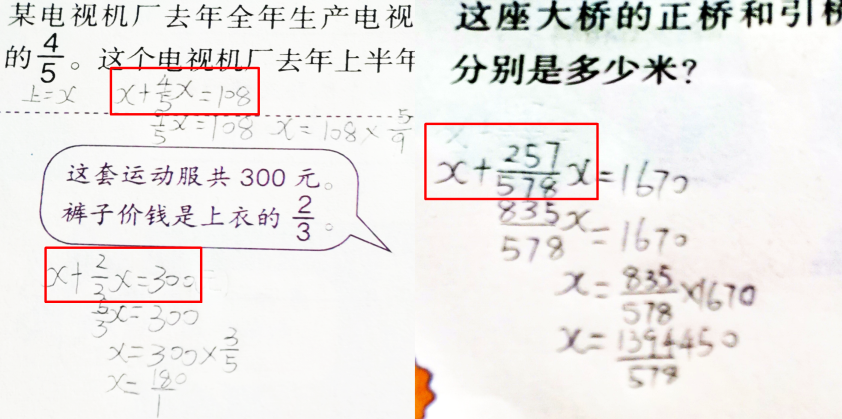 某电视机厂去年全年生产电视
的4/5。这个电视机厂去年上半年
上=x x+4/5x=108
9/5x=108 x=108×5/9
这套运动服共300元。
裤子价钱是上衣的2/3。
x+2/3x=300
5/3x=300
x=300×3/5
x=180/1
这座大桥的正桥和引桥
分别是多少米?
x+257/578x=1670
835/578x=1670
x=835/578×1670
x=1394450/578